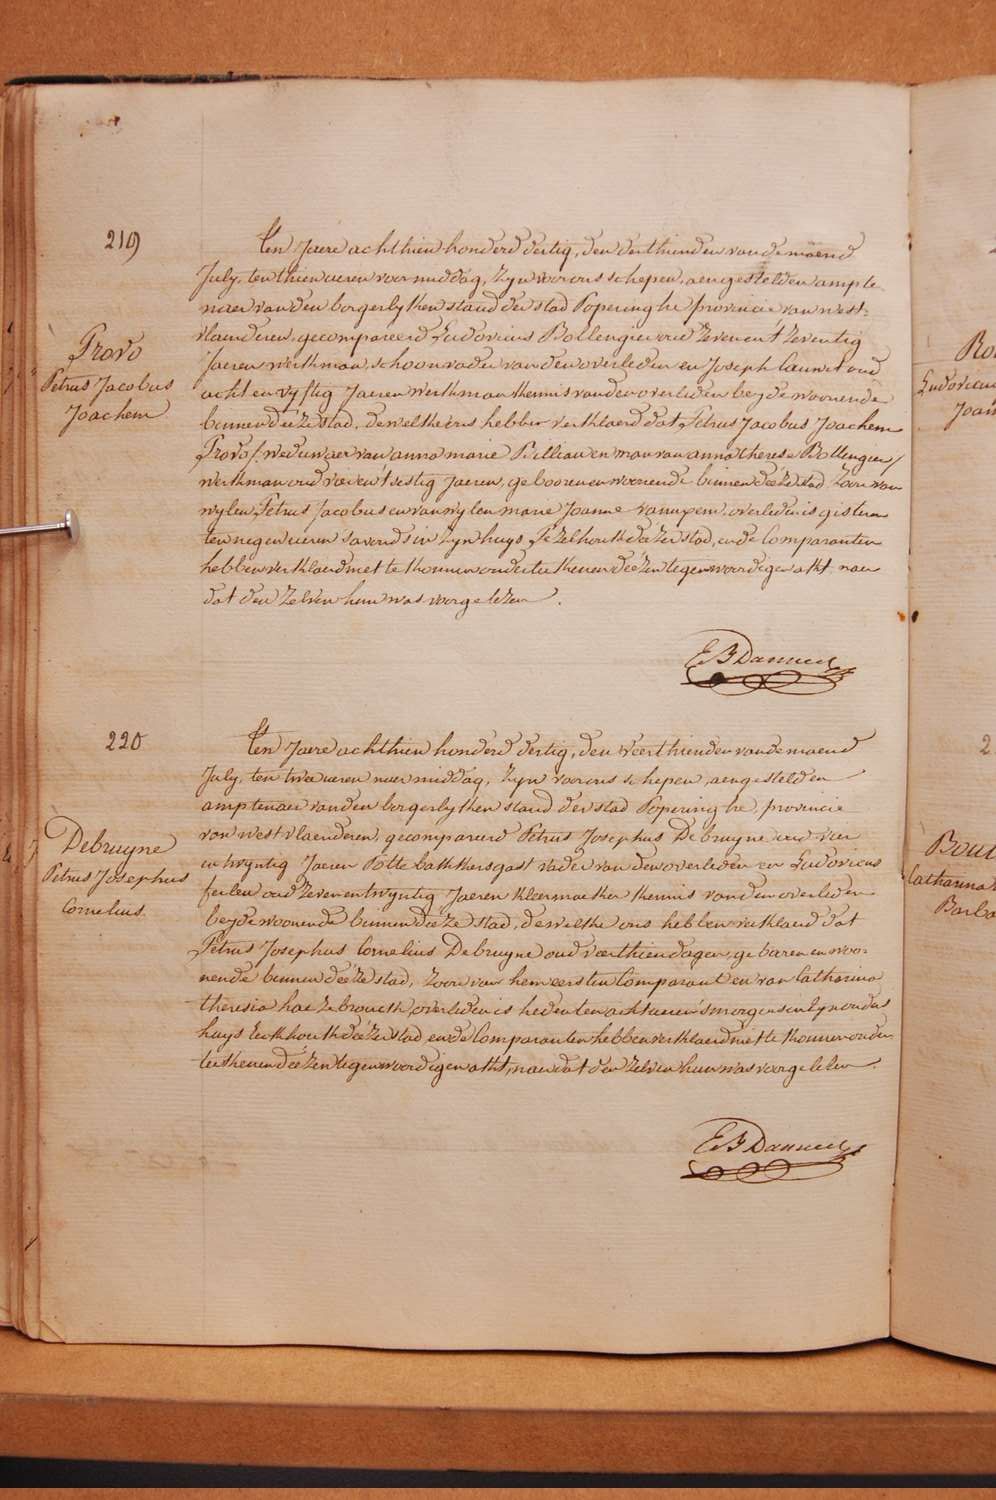 219
Provo
Petrus Jacobus
Joachem
Ten Jaere achthien honderd dertig, den derthienden van de maend
July, ten thien ueren voormiddag, zyn voor ons schepen, aengestelden ampte
naer van den borgerlyken stand der stad Poperinghe provincie van west-
vlaenderen, gecompareerd Ludovicus Bollengier oud zeven en t'zeventig
Jaeren werkman, schoonvader van den overleden en Joseph oud
acht en vyftig Jaeren werkman kennis van den overleden beyde woonende
binnen deéze stad, dewelke ons hebben verklaerd dat Petrus Jacobus Joachem
Provo /: weduwaer van anna marie Billiau en man van anna therese Bollengier /
werkman oud t'sestig Jaeren, gebooren en woonende binnen deéze stad, Zoon van
wylen Petrus Jacobus en van wylen marie Joanne vanuxem, overleden is gisteren
ten negen ueren s'avonds in zyn huys deéze stad, en de Comparanten
hebben verklaerd niet te konnen onderteekenen deézen tegenwoordigen akt naer
dat den zelven hun was voorgelezen.
E B Danneel
220
Debruyne
Petrus Josephus
Cornelius.
Ten Jaere achthien honderd dertig, den veerthienden van de maend
July, ten twee ueren naermiddag, zyn voor ons schepen, aengestelden
amptenaer van den borgerlyken stand der stad Poperinghe, provincie
van westvlaenderen, gecompareerd Petrus Josephus Debruyne oud vier
en twyntig Jaeren Potte bakkersgast vader van den overleden en Ludovicus
feilen oud zeven en twyntig Jaeren kleermaeker kennis van den overleden
beyde woonende binnen deéze stad, dewelke ons hebben verklaerd dat
Petrus Josephus Cornelius Debruyne oud veerthien dagen, gebaren en woo-
nende binnen deéze stad, zoon van hem eersten Comparant en van Catharina
theresia haezebrouck, overleden is heden ten acht ueren s'morgens in zyn ouders
huys deéze stad, en de Comparanten hebben verklaerd niet te konnen onder
teekenen deézen tegenwoordigen akt, naer dat den zelven hun was voorgelesen.
E B Danneel
Ludovicus
2
Catharina